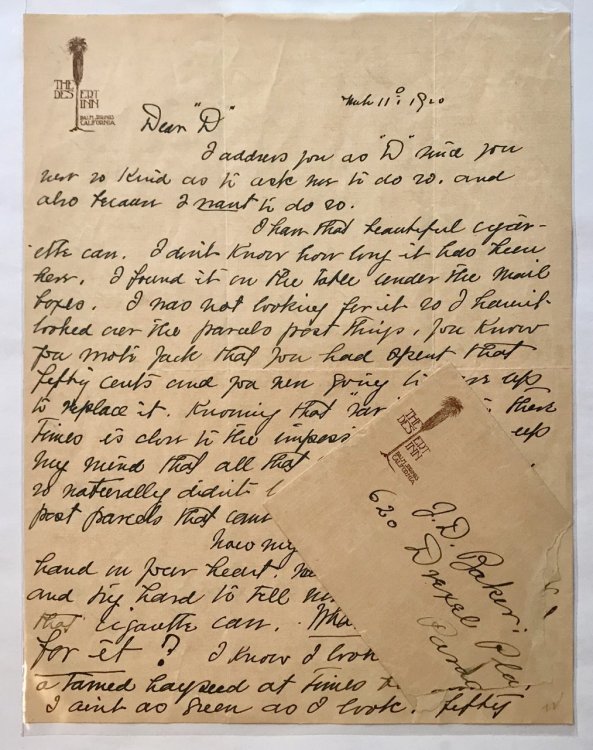 THE DESERT INN
PALM SPRINGS
CALIFORNIA
Mch 11º: 1920
Dear "D"
I address you as "D" since you
were so kind as to ask me to do so. and
also because I want to do so.
I have that beautiful cigar-
ette case. I don't know how long it has been
here. I found it on the table under the mail
boxes. I was not looking for it so I havent
looked over the parcels post things, you know
you wrote Jack that you had spent that
fifty cents and you were going to up
to replace it. Knowing that these
times is close to the up
my mind that all that
so naturally didn't
post parcels that came
Now my
hand on your heart.
and try hard to tell
that cigarette case.
for it? I know I look
a tamed hayseed at times
I aint as green as I look. fifty
THE DESERT INN
PALM SPRINGS
CALIFORNIA
J.D. Baker:
620 Drexel Pla.